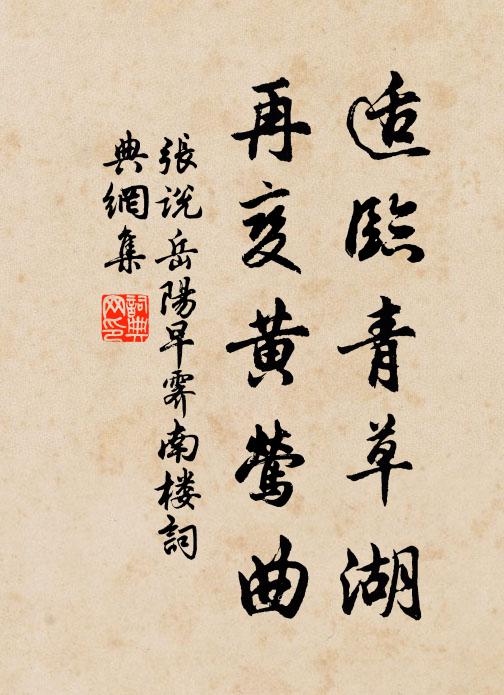 适臨青草湖
再変黄鶯曲
張説岳陽早霽南楼詞
典網集
詞典
网印